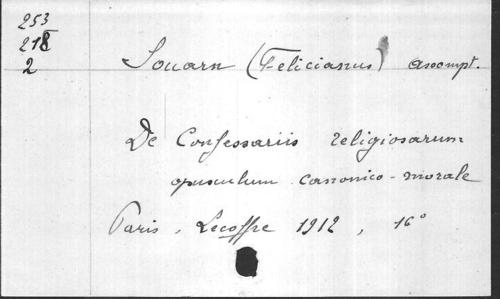 253
218
2
Souarn (Felicianus) assompt.
De Confessariis religiosarum
opusculum canonico-morale
Paris, Lecoffre 1912, 16°